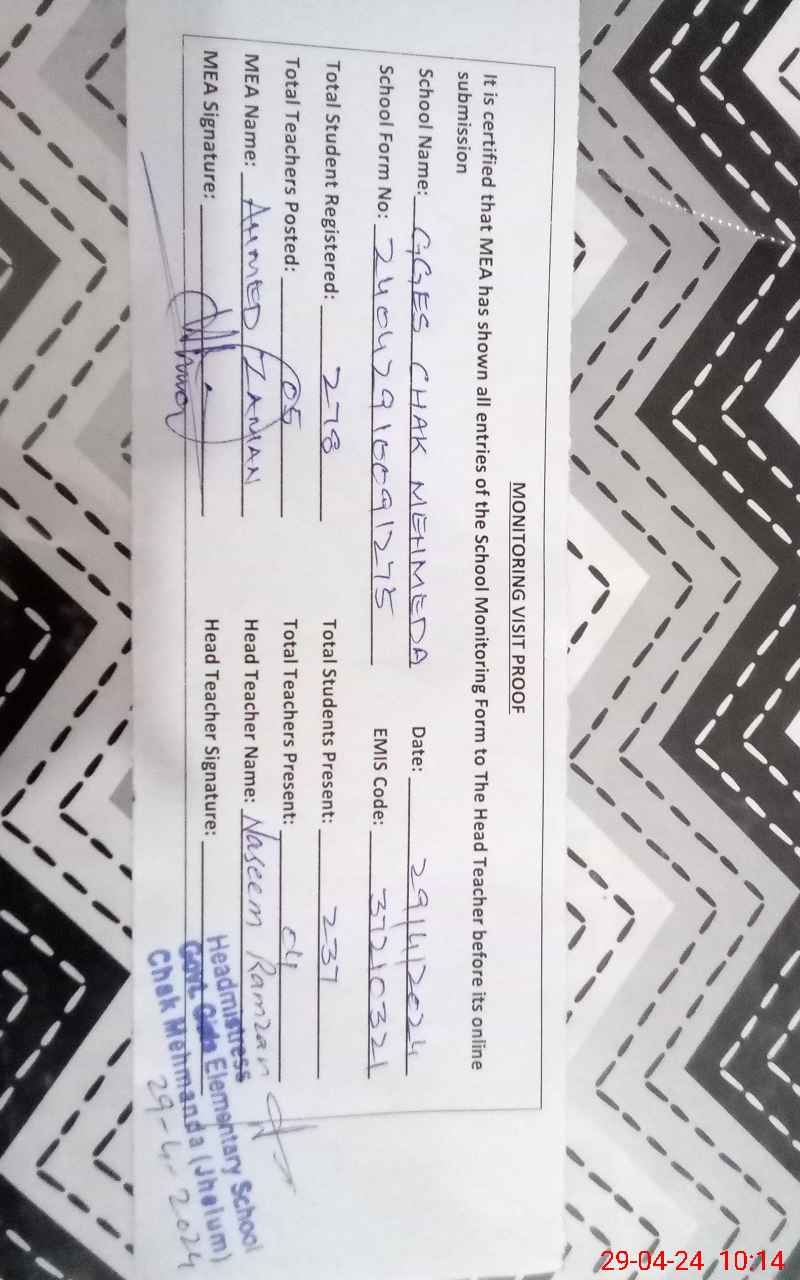 MONITORING VISIT PROOF
It is certified that MEA has shown all entries of the School Monitoring Form to The Head Teacher before its online
submission
School Name: GGES CHAK MEHMEDA Date: 29/4/2024
School Form No: 24047910091275 EMIS Code: 37210321
Total Student Registered: 278 Total Students Present: 237
Total Teachers Posted: 05 Total Teachers Present: 04
MEA Name: AHMED ZAMAN Head Teacher Name: Naseem Ramzan
MEA Signature: Head Teacher Signature:
Headmistress
Govt. Girls Elementary School
Chak Mehmanda (Jhelum)
29-4-2024
29-04-24 10:14